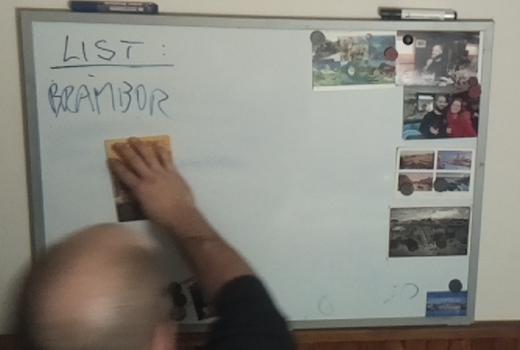 LIST:
BRAMBOR